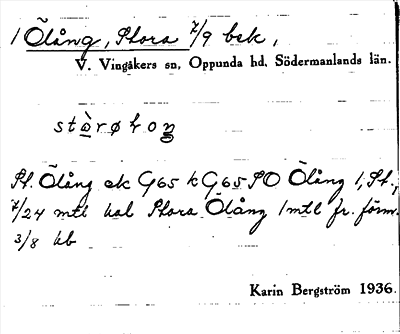 1 Ölång, Stora 7/9 bek,
V. Vingåkers sn, Oppunda hd, Södermanlands län.
stàrø
St. Ölång ek G65 k G65 SO Ölång 1, St.,
7/24 mtl kal Stora Ölång 1 mtl fr. förm.
3/8 kb
Karin Bergström 1936.